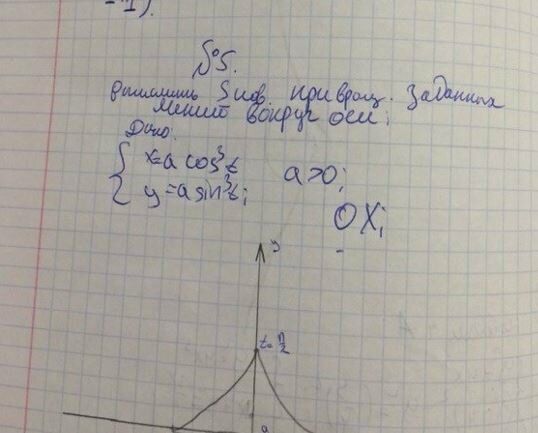 - 1).
№5.
Вычислить Sпов. при вращ. заданных
линий вокруг оси;
Дано.
{ x=a cos³t
{ y=a sin³t;
a>0;
OX;
y
t=π/2
a